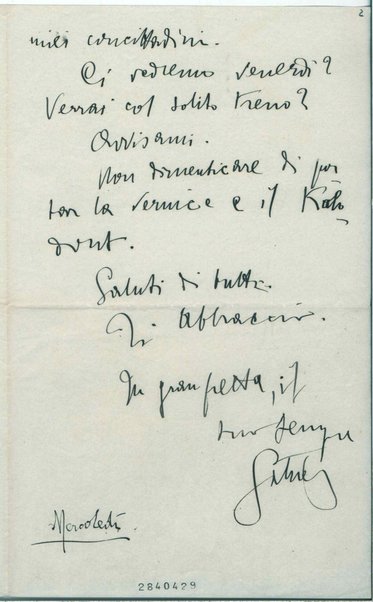 2
miei concittadini.
Ci vedremo venerdì?
Verrai col solito treno?
Avvisami.
Non dimenticare di por
tar la vernice e il Kalo
dont.
Saluti di tutti.
Ti abbraccio.
In gran fretta, il
tuo sempre
Mercoledì
2840429